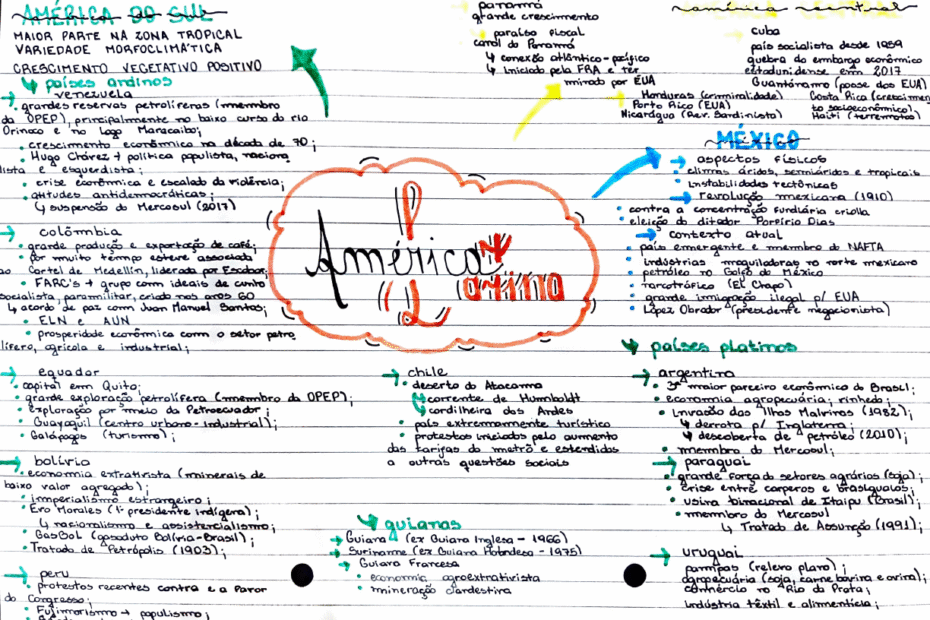 AMÉRICA DO SUL
MAIOR PARTE NA ZONA TROPICAL
VARIEDADE MORFOCLIMÁTICA
CRESCIMENTO VEGETATIVO POSITIVO
↳ países andinos
→ venezuela
• grandes reservas petrolíferas (membro
da OPEP), principalmente no baixo curso do rio
Orinoco e no Lago Maracaibo;
• crescimento econômico na década de 70;
• Hugo Chávez → política populista, naciona
lista e esquerdista;
• crise econômica e escalada da violência;
• atitudes antidemocráticas;
↳ suspensão do Mercosul (2017)
→ colômbia
• grande produção e exportação de café;
• por muito tempo esteve associada
ao Cartel de Medellín, liderada por Escobar;
• FARC's → grupo com ideais de cunho
socialista, paramilitar, criado nos anos 60
↳ acordo de paz com Juan Manuel Santos;
• ELN e AUN
• prosperidade econômica com o setor petro
lífero, agrícola e industrial;
→ equador
• capital em Quito;
• grande exploração petrolífera (membro da OPEP);
• exploração por meio da Petroecuador;
• Guayaquil (centro urbano-industrial);
• Galápagos (turismo);
→ bolívia
• economia extrativista (minerais de
baixo valor agregado);
• imperialismo estrangeiro;
• Evo Morales (1º presidente indígena);
↳ nacionalismo e assistencialismo;
• GasBol (gasoduto Bolívia-Brasil);
• Tratado de Petrópolis (1903);
→ peru
• protestos recentes contra e a favor
do Congresso;
• Fujimorismo → populismo;
panamá
grande crescimento
paraíso fiscal
canal do Panamá
↳ conexão atlântico-pacífico
↳ iniciado pela FRA e ter
minado por EUA
américa central
cuba
país socialista desde 1959
quebra do embargo econômico
estadunidense em 2017
Guantánamo (posse dos EUA)
Honduras (criminalidade)
Porto Rico (EUA)
Nicarágua (Rev. Sandinista)
Costa Rica (crescimen
to socioeconômico)
Haiti (terremotos)
MÉXICO
→ aspectos físicos
• climas áridos, semiáridos e tropicais
• instabilidades tectônicas
→ revolução mexicana (1910)
• contra a concentração fundiária criolla
• eleição do ditador Porfírio Dias
→ contexto atual
• país emergente e membro do NAFTA
• indústrias maquiladoras no norte mexicano
• petróleo no Golfo do México
• narcotráfico (El Chapo)
• grande imigração ilegal p/ EUA
• López Obrador (presidente negacionista)
América Latina
→ chile
• deserto do Atacama
↳ corrente de Humboldt
↳ cordilheira dos Andes
• país extremamente turístico
• protestos iniciados pelo aumento
das tarifas do metrô e estendidos
a outras questões sociais
↳ guianas
→ Guiana (ex Guiana Inglesa - 1966)
→ Suriname (ex Guiana Holandesa - 1975)
→ Guiana Francesa
• economia agroextrativista
• mineração clandestina
↳ países platinos
→ argentina
• 3º maior parceiro econômico do Brasil;
• economia agropecuária; vinhedo;
• invasão das Ilhas Malvinas (1982);
↳ derrota p/ Inglaterra;
↳ descoberta de petróleo (2010);
• membro do Mercosul;
→ paraguai
• grande força do setores agrários (soja);
• crise entre carperos e brasiguaios;
• usina binacional de Itaipu (Brasil);
• membro do Mercosul
↳ Tratado de Assunção (1991);
→ uruguai
pampas (relevo plano);
agropecuária (soja, carne bovina e ovina);
comércio no Rio da Prata;
indústria têxtil e alimentícia;